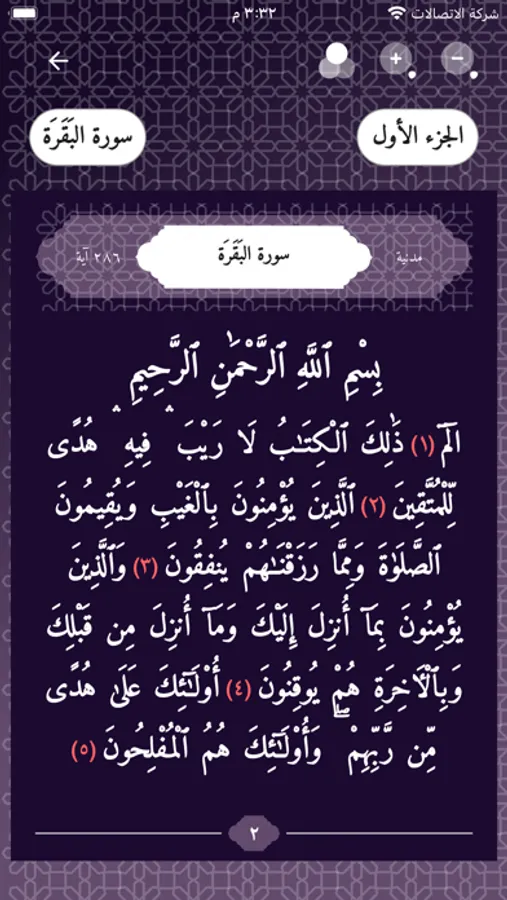 شركة الاتصالات ٣:٣٢ م
− +
الجزء الأول سورة البَقَرَة
مدنية سورة البَقَرَة ٢٨٦ آية
بِسْمِ ٱللَّهِ ٱلرَّحْمَٰنِ ٱلرَّحِيمِ
الٓمٓ (١) ذَٰلِكَ ٱلْكِتَٰبُ لَا رَيْبَ ۛ فِيهِ ۛ هُدًى
لِّلْمُتَّقِينَ (٢) ٱلَّذِينَ يُؤْمِنُونَ بِٱلْغَيْبِ وَيُقِيمُونَ
ٱلصَّلَوٰةَ وَمِمَّا رَزَقْنَٰهُمْ يُنفِقُونَ (٣) وَٱلَّذِينَ
يُؤْمِنُونَ بِمَآ أُنزِلَ إِلَيْكَ وَمَآ أُنزِلَ مِن قَبْلِكَ
وَبِٱلْأَخِرَةِ هُمْ يُوقِنُونَ (٤) أُوْلَٰٓئِكَ عَلَىٰ هُدًى
مِّن رَّبِّهِمْ ۖ وَأُوْلَٰٓئِكَ هُمُ ٱلْمُفْلِحُونَ (٥)
٢